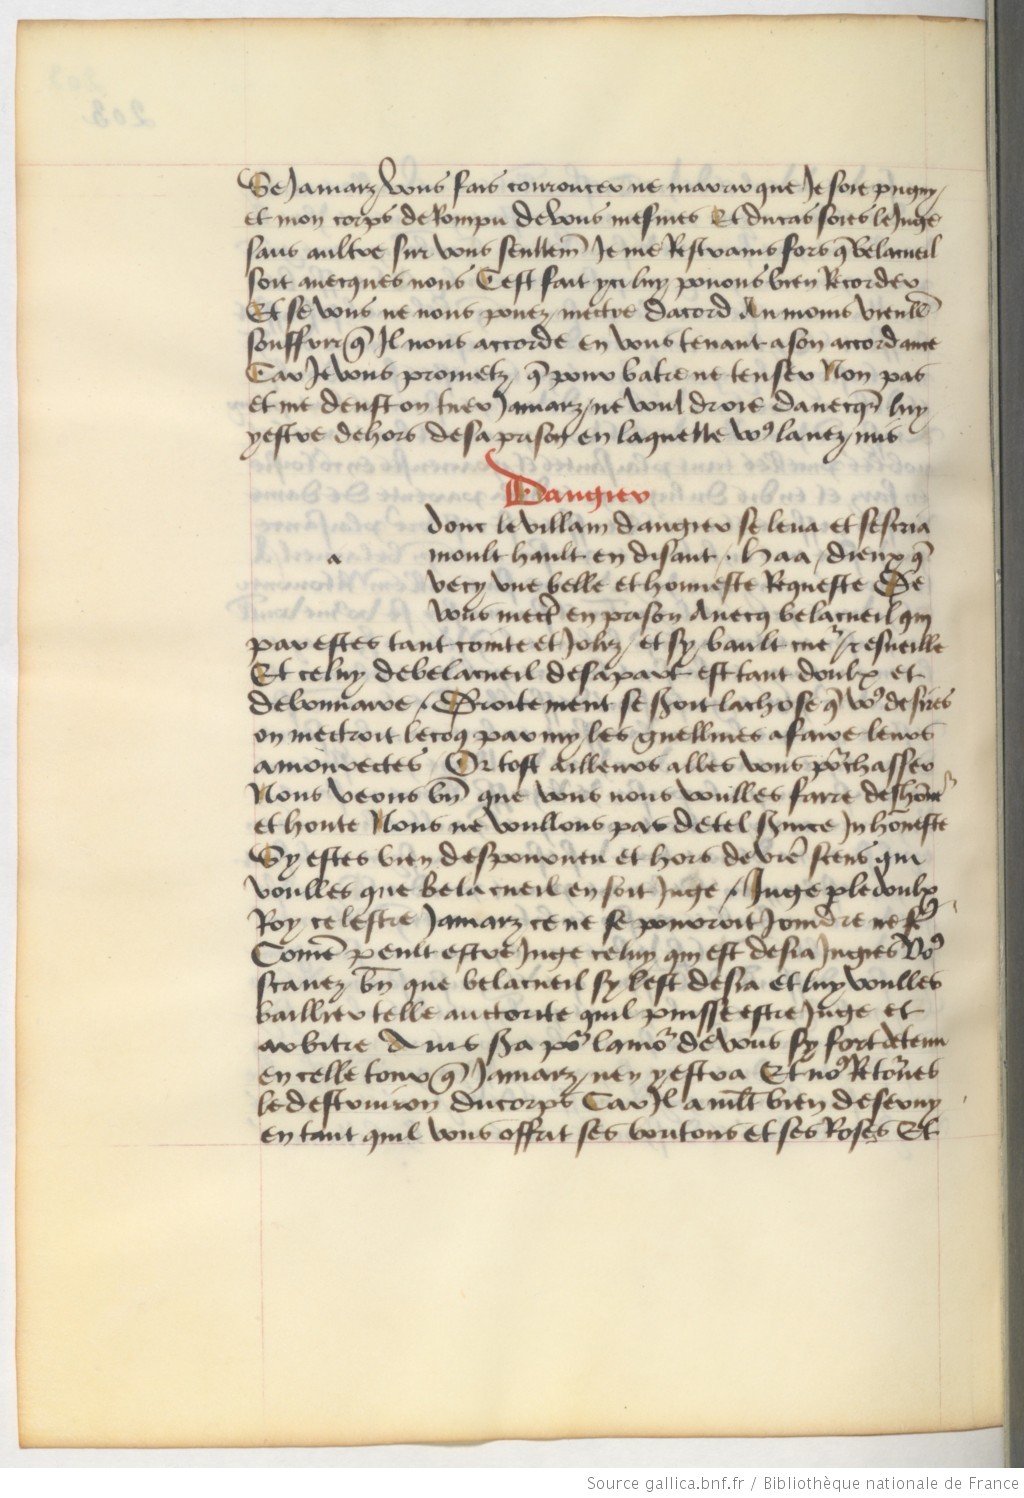 Se Jamaiz vous fais courroucer ne marrir que Je soie pugny
et mon corps derompu de vous mesmes Et du cas soies le Juge
sans aultre sur vous seullem̃ Je me Restrains fors q̃ belacueil
soit auecques nous Cest fait yci luy pouons bien Recorder
Et se vous ne nous pouez mectre dacord Au moins vieull̃
souffrir q̃ Il nous accorde en vous tenant a son accordance
Car Je vous prometz q̃ pour batre ne tenser Non pas
et me deust on tuer Jamaiz ne vouldroie dauecq̃s luy
yestre dehors de sa prison en laquelle vo9 lauez mis
Dangier
donc le villain dangier se leua et sescria
a moult hault en disant . haa dieux q̃
vecy vne belle et honneste Requeste De
vous mectr̃ en prison Auecq belacueil qui
par estes tant cointe et Joliz et sy bault
Et celuy de belacueil de sa part est tant doulx et
debonnaire / Droitement se ßoit la chose q̃ vo9 desires
on mectroit le coq parmy les guellines a faire leurs
amourectes Or tost ailleurs alles vous po͛chasser
Nous veons bñ que vous nous voulles faire
et honte Nous ne voullons pas de tel ßuice Inhõneste
Sy estes bien despourueu et hors de vrẽ scens qui
voulles que belacueil en soit Juge / Juge p le doulx
Roy celestre Jamaiz ce ne se pouroit Joindre
Comẽ peult estre Juge celuy qui est desia Jugies Vo9
scauez bñ que belacueil sy lest desia et luy voulles
baillier telle auctorite quil puisse estre Juge et
arbitre Ains ßa po͛ lamo͛ de vous sy fort detenu
en celle tour q̃ Jamaiz nen yestra Et no9 Reto͛nes
le destruiron du corps Car Il a mlt bien deseruy
en tant quil vous offrit ses boutons et ses Roses Et
Source gallica.bnf.fr / Bibliothèque nationale de France